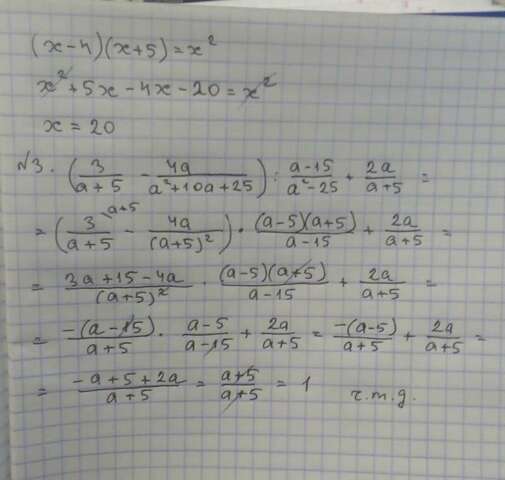 (x-4)(x+5)=x²
x²+5x-4x-20=x²
x=20
№3. (3/(a+5) - 4a/(a²+10a+25)) : (a-15)/(a²-25) + 2a/(a+5) =
= (3/(a+5) \a+5 - 4a/(a+5)²) · (a-5)(a+5)/(a-15) + 2a/(a+5) =
= (3a+15-4a)/(a+5)² · (a-5)(a+5)/(a-15) + 2a/(a+5) =
= -(a-15)/(a+5) · (a-5)/(a-15) + 2a/(a+5) = -(a-5)/(a+5) + 2a/(a+5) =
= (-a+5+2a)/(a+5) = (a+5)/(a+5) = 1 ч.т.д.